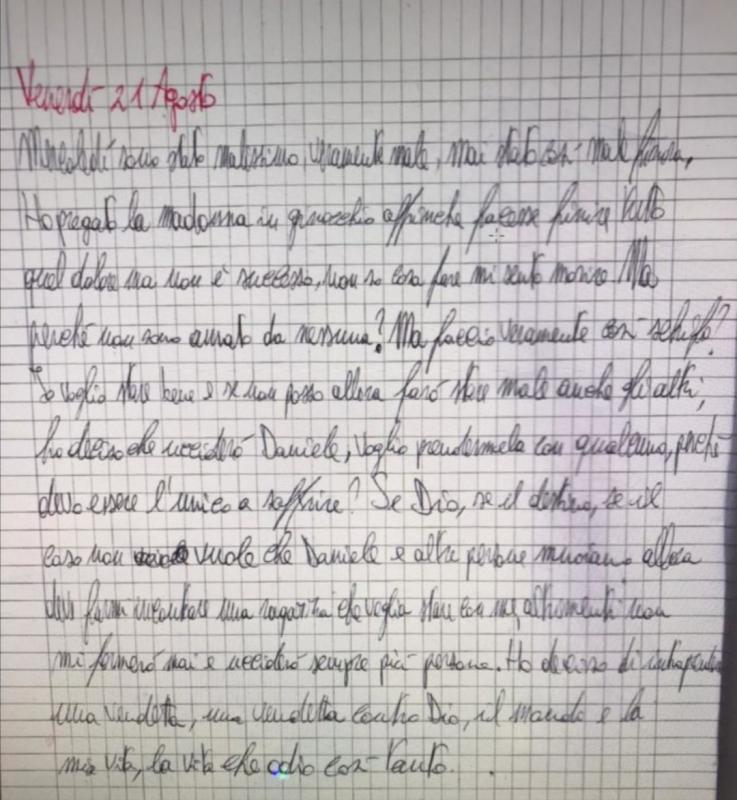 Venerdì 21 Agosto
Mercoledì sono stato malissimo, veramente male, mai stato così male finora.
Ho pregato la madonna in ginocchio affinché facesse finire tutto
quel dolore ma non è successo, non so cosa fare mi sento morire. Ma
perché non sono amato da nessuna? Ma faccio veramente così schifo?
Io voglio stare bene e se non posso allora farò stare male anche gli altri,
ho deciso che ucciderò Daniele, voglio prendermela con qualcuno, perché
devo essere l'unico a soffrire? Se Dio, se il destino, se il
caso non vuole che Daniele e altre persone muoiano allora
deve farmi incontrare una ragazza che voglia stare con me, altrimenti non
mi fermerò mai e ucciderò sempre più persone. Ho deciso di intraprendere
una vendetta, una vendetta contro Dio, il mondo e la
mia vita, la vita che odio così tanto.